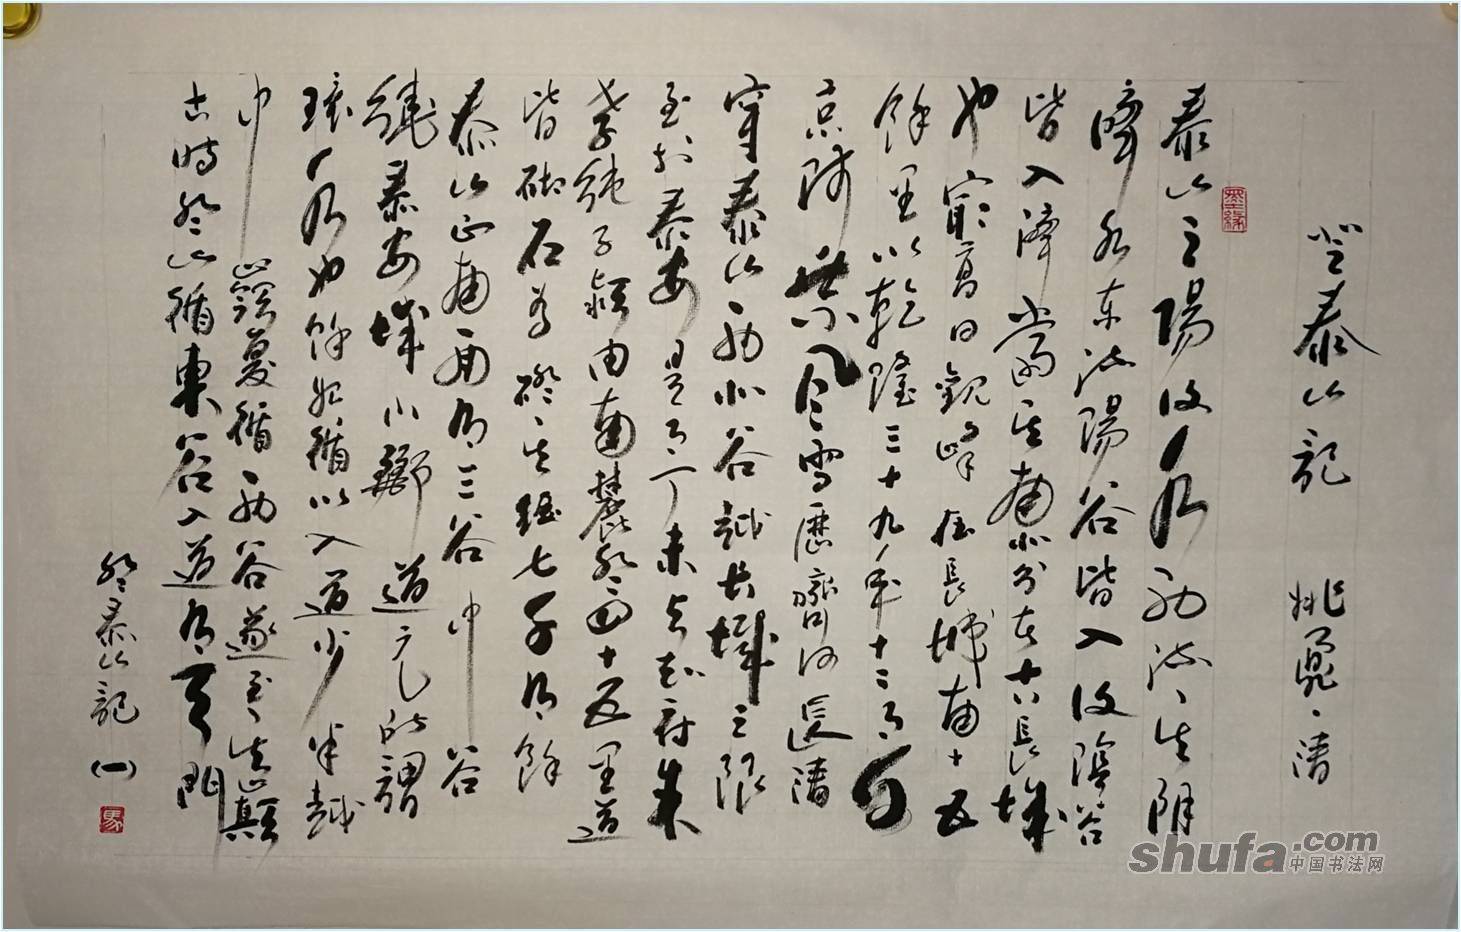 登泰山記 姚鼐、清
墨緣
泰山之陽汶水西流、其陰
濟水東流陽谷皆入汶陰谷
皆入濟當其南北分者古長城
也最高日觀峰在長城南十五
餘里以乾隆三十九年十二月自
京師乘風雪歷齊河長清
穿泰山西北谷越長城之限
至於泰安是月丁未與知府朱
孝純子潁由南麓登四十五里道
皆砌石為磴其級七千有餘
泰山正南面有三谷中谷
繞泰安城下酈道元所謂
環水也餘始循以入道少半越
中嶺復循西谷遂至其巔
古時登山循東谷入道有天門
登泰山記(一)
馬
shufa.com
中国书法网